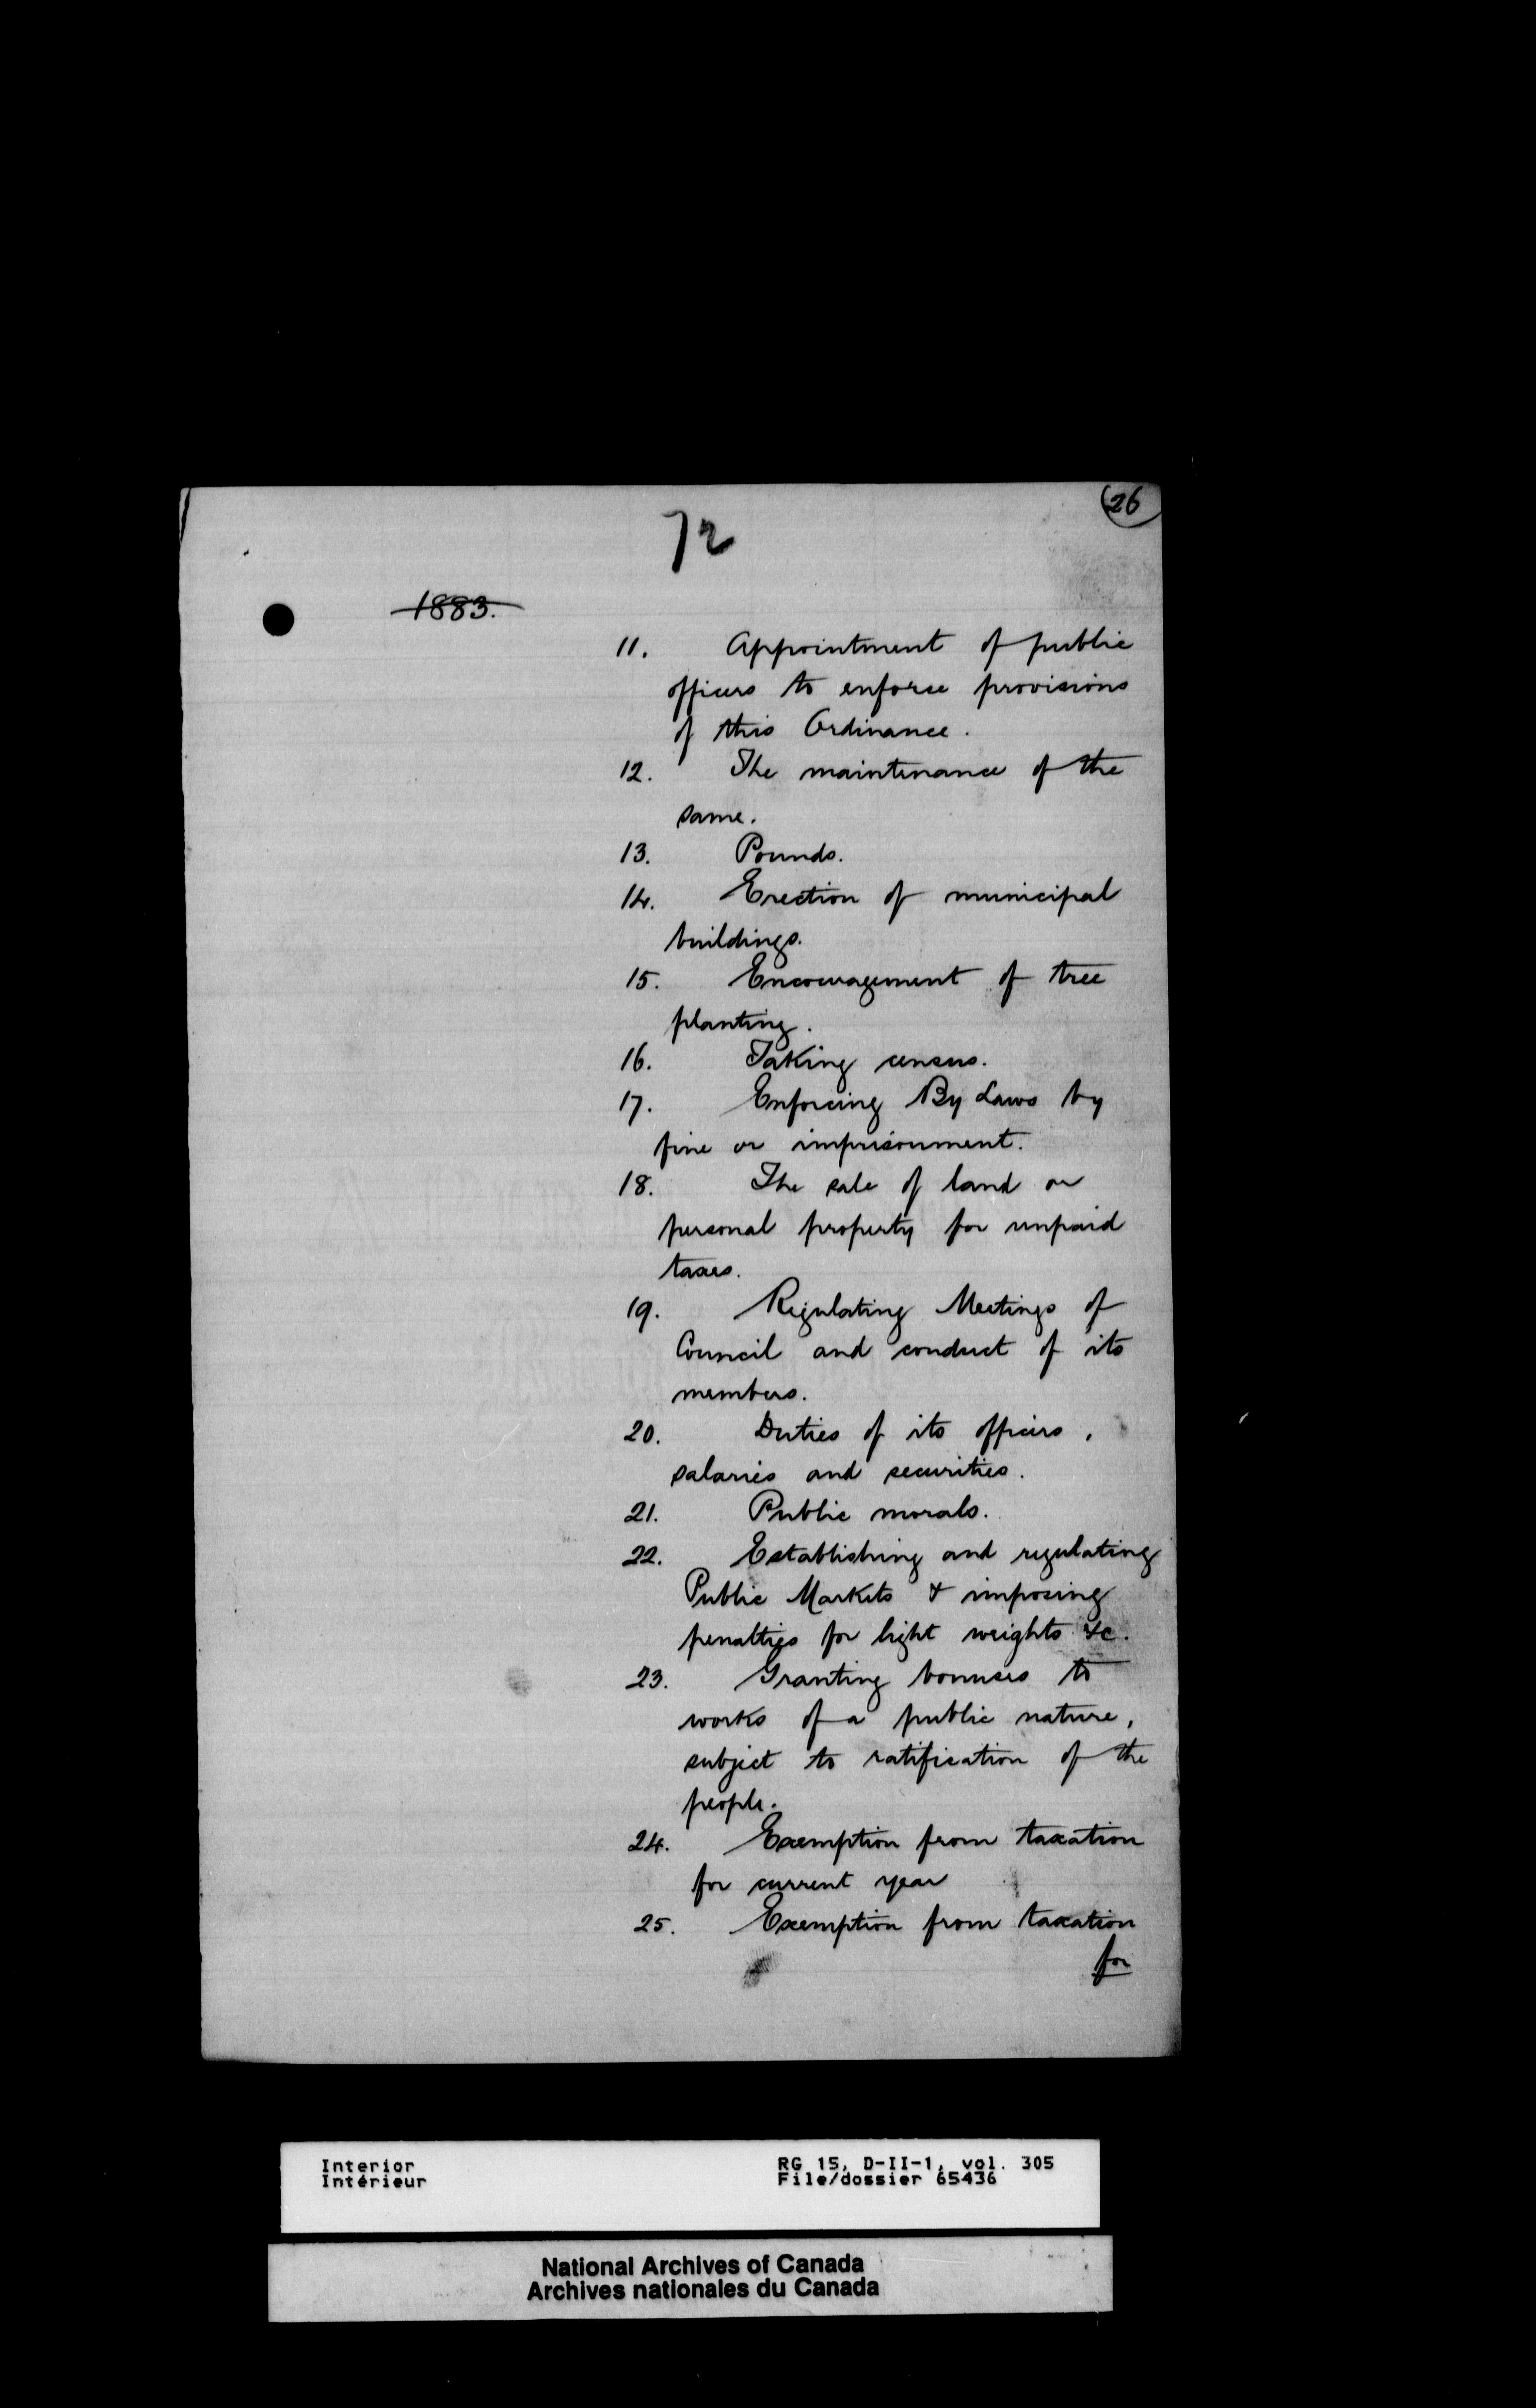 26
72
1883.
11. Appointment of public
officers to enforce provisions
of this Ordinance.
12. The maintenance of the
same.
13. Pounds.
14. Erection of municipal
buildings.
15. Encouragement of tree
planting.
16. Taking census.
17. Enforcing By Laws by
fine or imprisonment.
18. The sale of land or
personal property for unpaid
taxes.
19. Regulating Meetings of
Council and conduct of its
members.
20. Duties of its officers,
salaries and securities.
21. Public morals.
22. Establishing and regulating
Public Markets & imposing
penalties for light weights &c.
23. Granting bonuses to
works of a public nature,
subject to ratification of the
people.
24. Exemption from taxation
for current year
25. Exemption from taxation
for
Interior RG 15, D-II-1, vol. 305
Intérieur File/dossier 65436
National Archives of Canada
Archives nationales du Canada